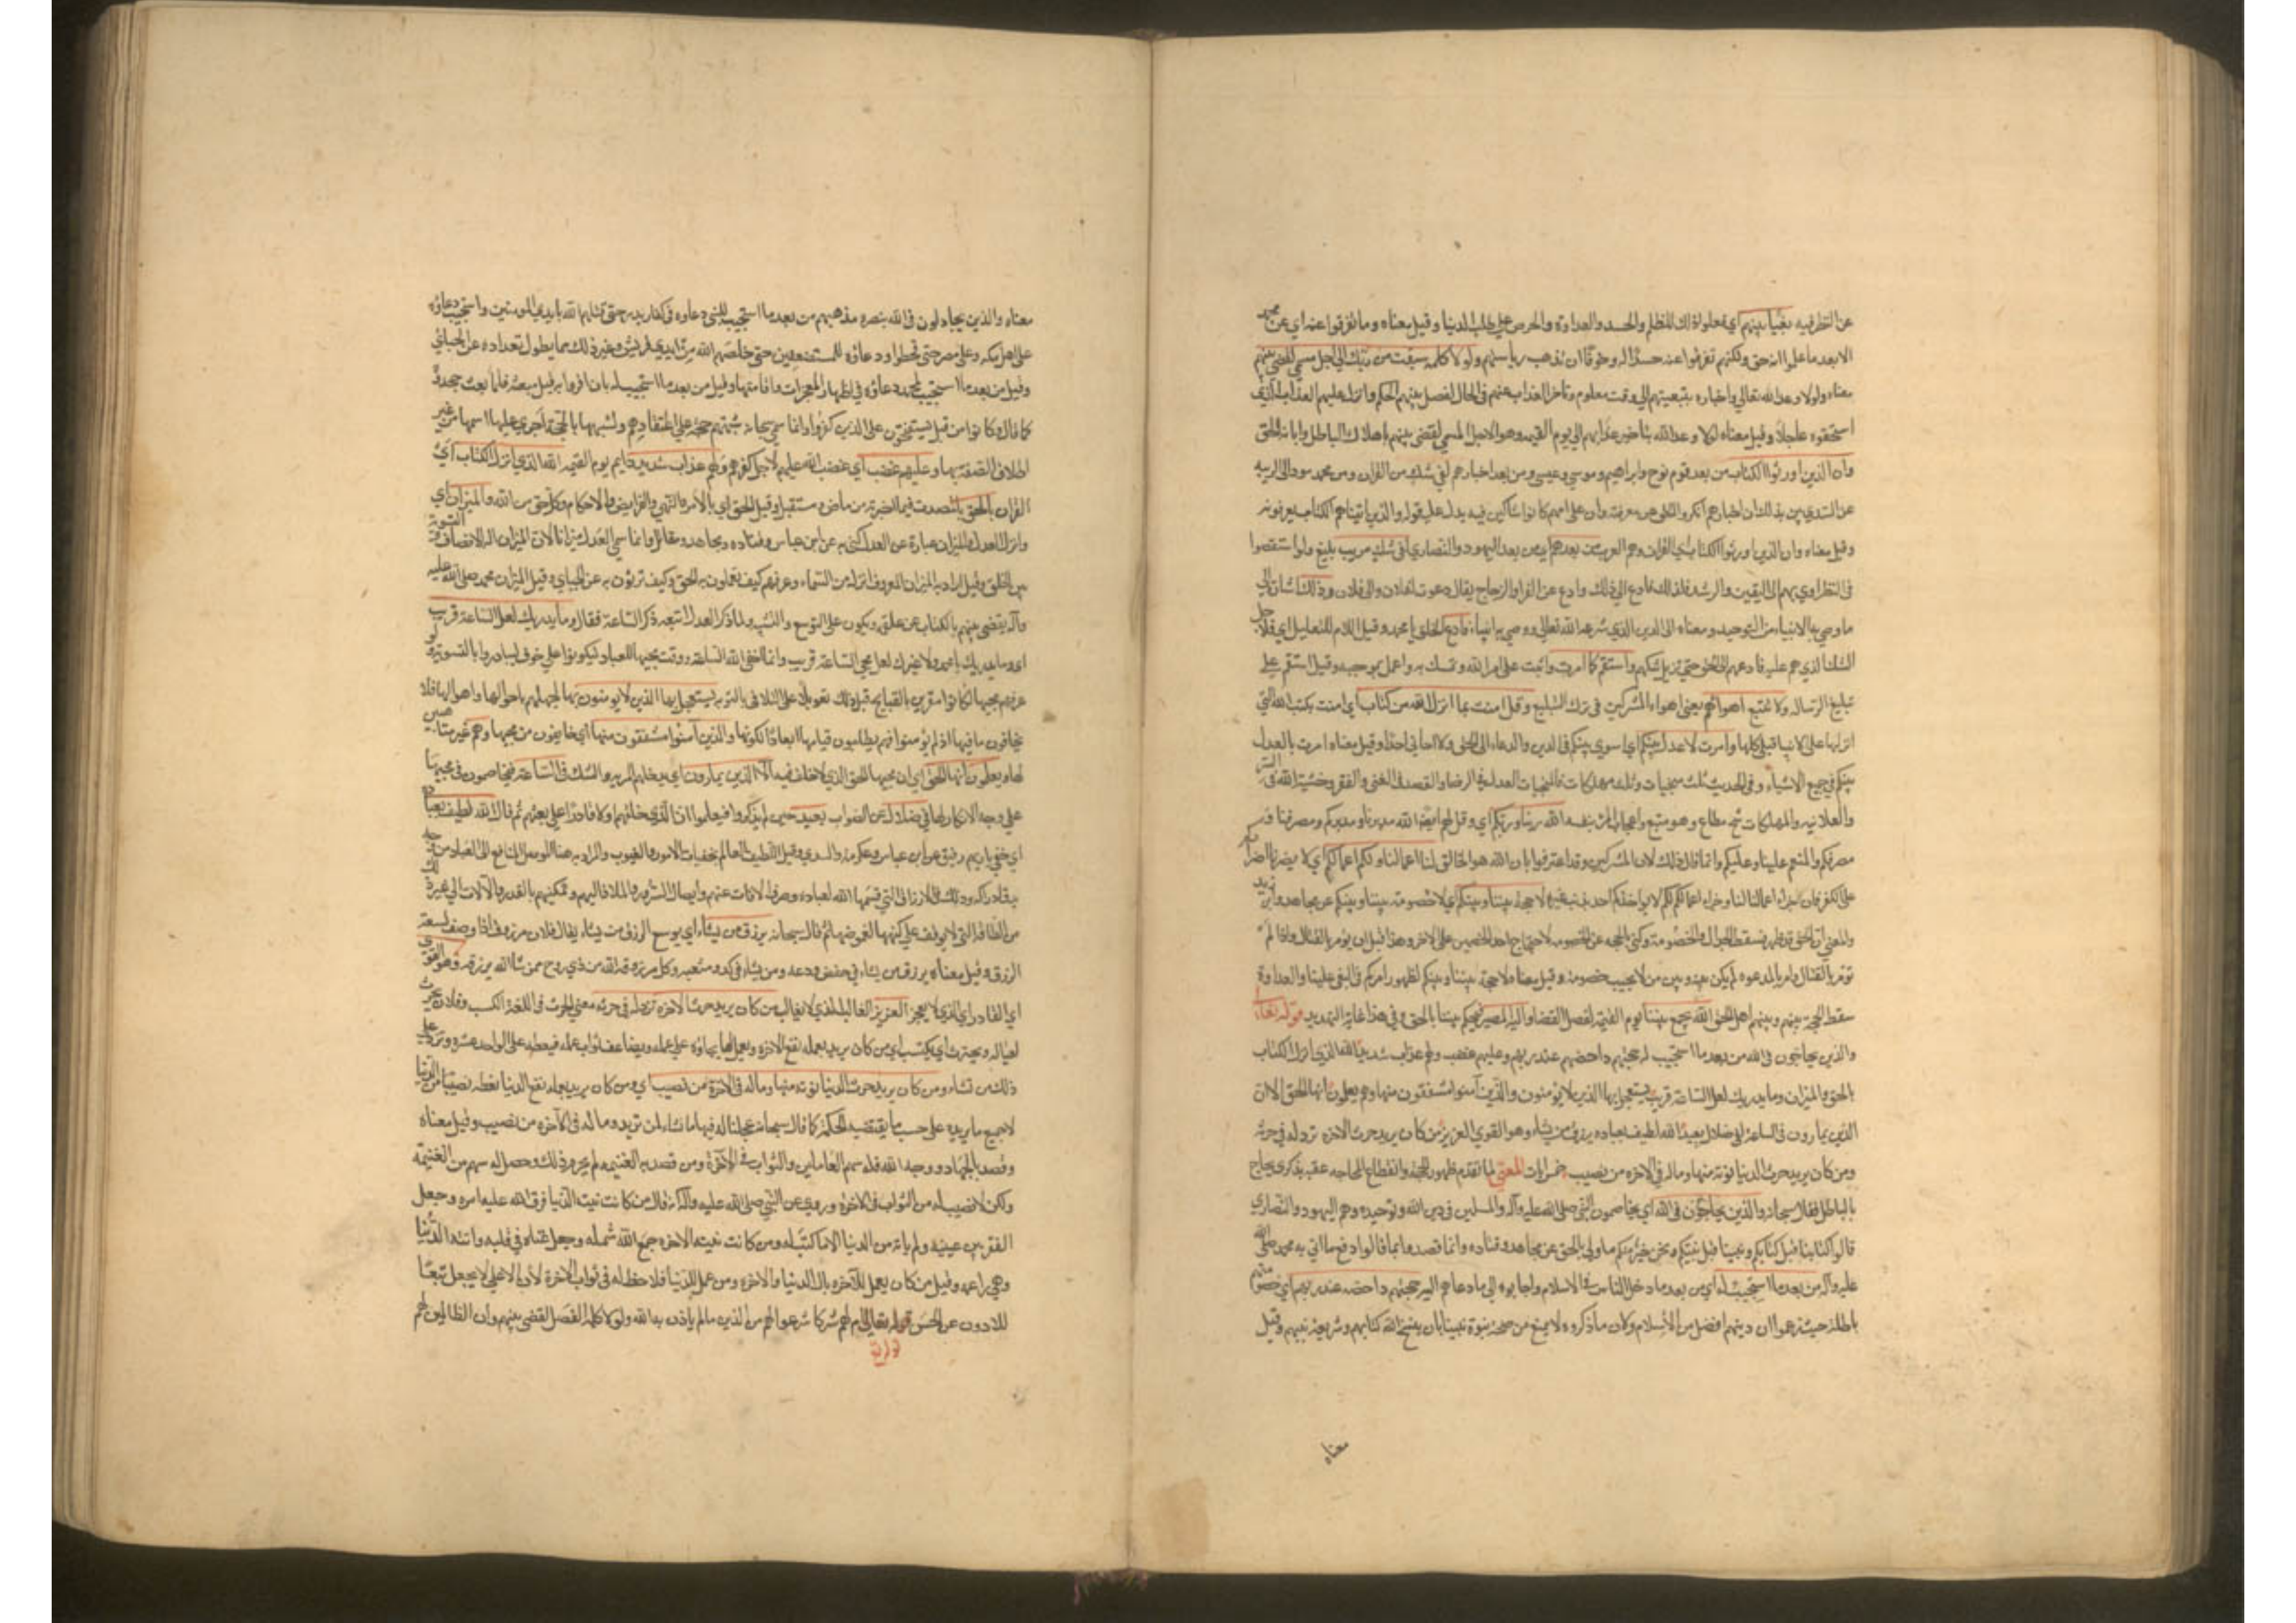 عن النظر فيه بغيا بينهم اي فعلوا ذلك للظلم والحسد والعداوة والحرص علي طلب الدنيا وقيل معناه وما تفرقوا عنه اي عن محمد
الا بعد ما علموا انه حق ولكنهم تفرقوا عنه حسدا له وخوفا ان تذهب رياستهم ولولا كلمة سبقت من ربك الي اجل مسمي لقضي بينهم
معناه ولولا وعد الله تعالي واخباره بتبعيتهم الي وقت معلوم وتاخر العذاب عنهم في الحال لفصل بينهم الحكم وانزل عليهم العذاب الذي
استحقوه عاجلا وقيل معناه لولا وعد الله بتاخير عذابهم الي يوم القيمه وهو الاجل المسمي لقضي بينهم باهلاك الباطل واثابة الحق
وان الذين اورثوا الكتاب من بعد قوم نوح وابراهيم وموسي وعيسي ومن بعد احبارهم لفي شك من القران ومن محمد مود الي الريبه
عن السدي بين بذلك ان احبارهم انكروا الحق عن معرفة وان عوامهم كانوا شاكين فيه يدل عليه قوله والذين اتيناهم الكتاب يعرفونه
وقيل معناه وان الذين اورثوا الكتاب اي القران وهم العرب من بعدهم اي من بعد اليهود والنصاري لفي شك منه مريب بليغ ولو استقصوا
في النظر اوي بهم الي اليقين والرشد فلذلك فادع اي الي ذلك فادع عن الفرا والزجاج يقال دعوت لفلان والي فلان وذلك اشارة الي
ما وصي به الانبياء من التوحيد ومعناه الي الدين الذي شرعه الله تعالي ووصي به انبياءه فادع الخلق يا محمد وقيل اللام للتعليل اي فلاجل
الشك الذي هم عليه فادعهم الي الحق حتي تزيل شكهم واستقم كما امرت واثبت علي امر الله وتمسك به واعمل بموجبه وقيل استقم علي
تبليغ الرسالة ولا تتبع اهوائهم يعني اهواء المشركين في ترك التبليغ وقل امنت بما انزل الله من كتاب اي امنت بكتب الله التي
انزلها علي الانبيا قبلي كلها وامرت لاعدل بينكم اي اسوي بينكم في الدين والدعاء الي الحق ولا احابي احدا وقيل معناه امرت بالعدل
بينكم في جميع الاشياء وفي الحديث ثلث منجيات وثلث مهلكات فالمنجيات العدل في الرضا والقصد في الغني والفقر وخشية الله في السر
والعلانية والمهلكات شح مطاع وهو متبع واعجاب المرء بنفسه الله ربنا وربكم اي وقل لهم ايضا الله مدبرنا ومدبركم ومصرفنا و
مصرفكم والمنعم علينا وعليكم وانما قال ذلك لان المشركين وقد اعترفوا بان الله هو الخالق لنا اعمالنا ولكم اعمالكم اي لا يضرنا اصراركم
علي الكفر فان جزاء اعمالنا لنا وجزاء اعمالكم لكم لا يواخذ احد بذنب غيره لا حجة بيننا وبينكم اي لا خصومة بيننا وبينكم عن مجاهد وابن زيد
والمعني ان الحق قد ظهر فسقط الجدال والخصومة وكني بالحجة عن الخصومة لاحتجاج احد الخصمين علي الاخر وهذا قبل ان يؤمر بالقتال واذا لم
يؤمر بالقتال وامر بالدعوه لم يكن بينه وبين من لا يجيب خصومة وقيل معناه لا حجة بيننا وبينكم لظهور امركم في البغي علينا والعداوة
سقط الحجة بينهم وبينهم اهل الحق الله يجمع بيننا يوم القيمة لفصل القضا واليه المصير فيحكم بيننا بالحق وفي هذا غاية التهديد قوله تعالي
والذين يحاجون في الله من بعد ما استجيب له حجتهم داحضة عند ربهم وعليهم غضب ولهم عذاب شديد الله الذي انزل الكتاب
بالحق والميزان وما يدريك لعل الساعة قريب يستعجل بها الذين لا يؤمنون والذين آمنوا مشفقون منها وهم يعلمون انها الحق الا ان
الذين يمارون في الساعة لفي ضلال بعيد الله لطيف بعباده يرزق من يشاء وهو القوي العزيز من كان يريد حرث الاخرة نزد له في حرثه
ومن كان يريد حرث الدنيا نوته منها وماله في الاخره من نصيب خمس ايات المعني لما تقدم ظهور الحجة وانقطاع المحاجه عقبه بذكر من يحاج
بالباطل فقال سبحانه والذين يحاجون في الله اي يخاصمون النبي صلي الله عليه وآله والمسلمين في دين الله وتوحيده وهم اليهود والنصاري
قالوا كتابنا قبل كتابكم ونبينا قبل نبيكم ونحن خير منكم واولي بالحق عن مجاهد وقتاده وانما قصدوا بما قالوا دفع ما اتي به محمد صلي الله
عليه وآله من بعد ما استجيب له اي من بعد ما دخل الناس في الاسلام واجابوه الي ما دعاهم اليه حجتهم داحضه عند ربهم اي خصومتهم
باطلة حيث زعموا ان دينهم افضل من الاسلام وكان ما ذكروه لا يمنع من صحة نبوة نبينا بان ينسخ الله كتابهم وشريعة نبيهم وقيل
معناه
معناه والذين يجادلون في الله بنصرة مذهبهم من بعد ما استجيب للنبي دعاوه في كفار بدر حتي قتلهم الله بايدي المومنين واستجيب دعاؤه
علي اهل مكه وعلي مضر حتي قحطوا ودعاؤه للمستضعفين حتي خلصهم الله من ايدي قريش وغير ذلك مما يطول تعداده عن الجبائي
وقيل من بعد ما استجيب لمحمد دعاؤه في اظهار المعجزات واقامتها وقيل من بعد ما استجيب له بان اقروا به قبل مبعثه فلما بعث جحدوه
كما قال وكانوا من قبل يستفتحون علي الذين كفروا وانما سمي سبحانه شبهتهم حجة علي اعتقادهم ولشبهها بالحجة اجري عليها اسمها من غير
اطلاق الصفة بها وعليهم غضب اي غضب الله عليهم لاجل كفرهم ولهم عذاب شديد دايم يوم القيمه الله الذي انزل الكتاب اي
القران بالحق اي بالصدق فيما اخبر به من ماض ومستقبل وقيل بالحق اي بالامر والنهي والفرايض والاحكام وكله حق من الله والميزان اي
وانزل العدل والميزان عبارة عن العدل كني به عن ابن عباس وقتاده ومجاهد ومقاتل وانما سمي العدل ميزانا لان الميزان اله الانصاف والتسوية
بين الخلق وقيل اراد به الميزان المعروف انزله من السماء وعرفهم كيف يعملون به بالحق وكيف تزنون به عن الجباي وقيل الميزان محمد صلي الله عليه
وآله يقضي بينهم بالكتاب عن علقمة ويكون علي التوسع والتشبيه ولما ذكر العدل اتبعه ذكر الساعة فقال وما يدريك لعل الساعة قريب
اي وما يدريك يا محمد ولا غيرك لعل مجي الساعة قريب وانما اخفي الله الساعة ووقت مجيها عن العباد ليكونوا علي خوف ليبادروا بالتوبة ولو
عرفهم مجيها لكانوا مغرين بالقبايح قبل ذلك تعويلا علي التلافي بالتوبه يستعجل بها الذين لا يومنون بها لجهلهم باحوالها واهوالها فلا
يخافون ما فيها اذ لم يؤمنوا فهم يطلبون قيامها ابعادا لكونها والذين آمنوا مشفقون منها اي خايفون من مجيها وهم غير متاهبين
لها ويعلمون انها الحق اي ان مجيها الحق الذي لا خلاف فيه الا ان الذين يمارون اي يدخلهم المريه والشك في الساعة فيخاصمون في مجيها
علي وجه الانكار لها لفي ضلال عن الصواب بعيد حين لم يتذكروا فيعلموا ان الذي خلقهم اولا قادر علي بعثهم ثم قال الله لطيف بعباده
اي حفي بارهم رفيق عن ابن عباس وعكرمه والسدي وقيل اللطيف العالم بخفيات الامور والغيوب والمراد به هنا الموصل المنافع الي العباد من وجه
يدق ادراكه وذلك في الارزاق التي قسمها الله لعباده وصرف الافات عنهم وايصال السرور والملاذ اليهم وتمكينهم بالقدر والآلات الي غير ذلك
من الطافه التي لا يوقف علي كنهها لغموضها ثم قال سبحانه يرزق من يشاء اي يوسع الرزق من يشاء يقال فلان مرزوق اذا وصف بسعة
الرزق وقيل معناه يرزق من يشاء في خفض ودعه ومن يشاء في كد ومتعبه وكل من رزقه الله من ذي روح ممن شا الله يرزقه وهو القوي
اي القادر الذي لا يعجز العزيز الغالب الذي لا يغالب من كان يريد حرث الاخره نزد له في حرثه معني الحرث في اللغة الكسب وفلان يحرث
لعياله ويحترث اي يكتسب اي من كان يريد بعمله نفع الاخره ويعمل لها نجازه علي عمله ونضاعف ثواب عمله فيعطيه علي الواحد عشره ونزيد علي
ذلك من نشاء ومن كان يريد حرث الدنيا نوته منها وماله في الاخرة من نصيب اي ومن كان يريد بعمله نفع الدنيا نعطه نصيبا من الدنيا
لا جميع ما يريده علي حسب ما يقتضيه الحكمة كما قال سبحانه عجلنا له فيها ما نشاء لمن نريد وماله في الآخره من نصيب وقيل معناه
وقصد بالجهاد ووجه الله فله سهم العاملين والثواب في الآخرة ومن قصد به الغنيمه لم يحرم ذلك وحصل له سهم من الغنيمة
ولكن لا نصيب له من الثواب في الاخرة وروي عن النبي صلي الله عليه وآله انه قال من كانت نيته الدنيا فرق الله عليه امره وجعل
الفقر بين عينيه ولم ياته من الدنيا الا ما كتب له ومن كانت نيته الاخره جمع الله شمله وجعل غناه في قلبه واتته الدنيا
وهي راغمه وقيل من كان يعمل للآخره نال الدنيا والاخره ومن عمل للدنيا فلا حظ له في ثواب الاخرة لان الاعلي لا يجعل تبعا
للادون عن الحسن قوله تعالي ام لهم شركا شرعوا لهم من الدين ما لم ياذن به الله ولولا كلمة الفصل لقضي بينهم وان الظالمين لهم